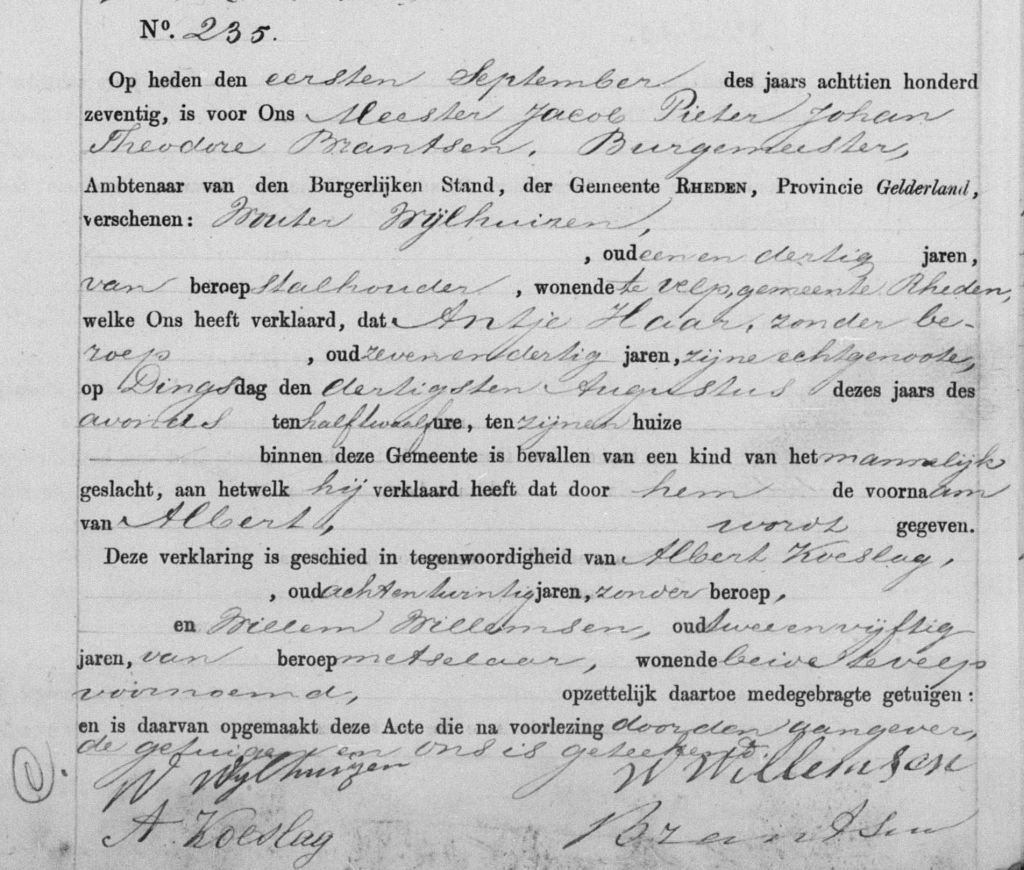 Nº. 235.
Op heden den eersten September des jaars achttien honderd
zeventig, is voor Ons Meester Jacob Pieter Johan
Theodore Brantsen, Burgemeester,
Ambtenaar van den Burgerlijken Stand, der Gemeente RHEDEN, Provincie Gelderland,
verschenen: Wouter Wijlhuizen,
, oud een en dertig jaren,
van beroep stalhouder, wonende te Velp, gemeente Rheden,
welke Ons heeft verklaard, dat Antje Haar, zonder be-
roep, oud zeven en dertig jaren, zijne echtgenoote,
op Dingsdag den dertigsten Augustus dezes jaars des
avonds ten half twaalf ure, ten zijnen huize
binnen deze Gemeente is bevallen van een kind van het mannelijk
geslacht, aan hetwelk hij verklaard heeft dat door hem de voornaam
van Albert, wordt gegeven.
Deze verklaring is geschied in tegenwoordigheid van Albert Koeslag,
, oud acht en twintig jaren, zonder beroep,
en Willem Willemsen, oud twee en vijftig
jaren, van beroep metselaar, wonende beide te Velp
voornoemd, opzettelijk daartoe medegebragte getuigen:
en is daarvan opgemaakt deze Acte die na voorlezing door den aangever,
de getuigen en ons is geteekend.
W Wijlhuizen W Willemsen
A. Koeslag Brantsen